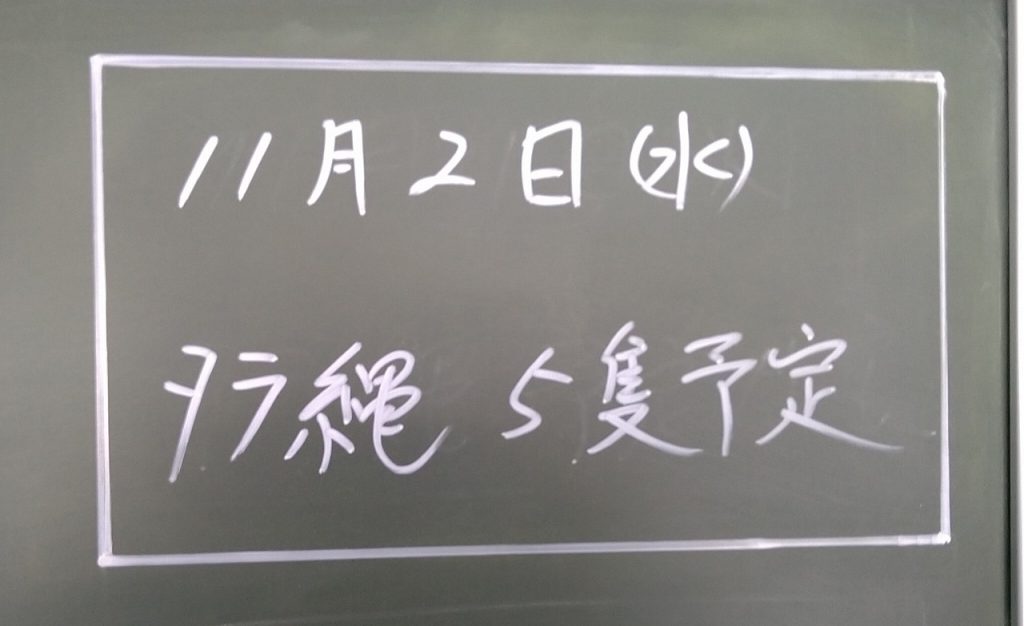 11月2日(水)
タラ縄 5隻予定